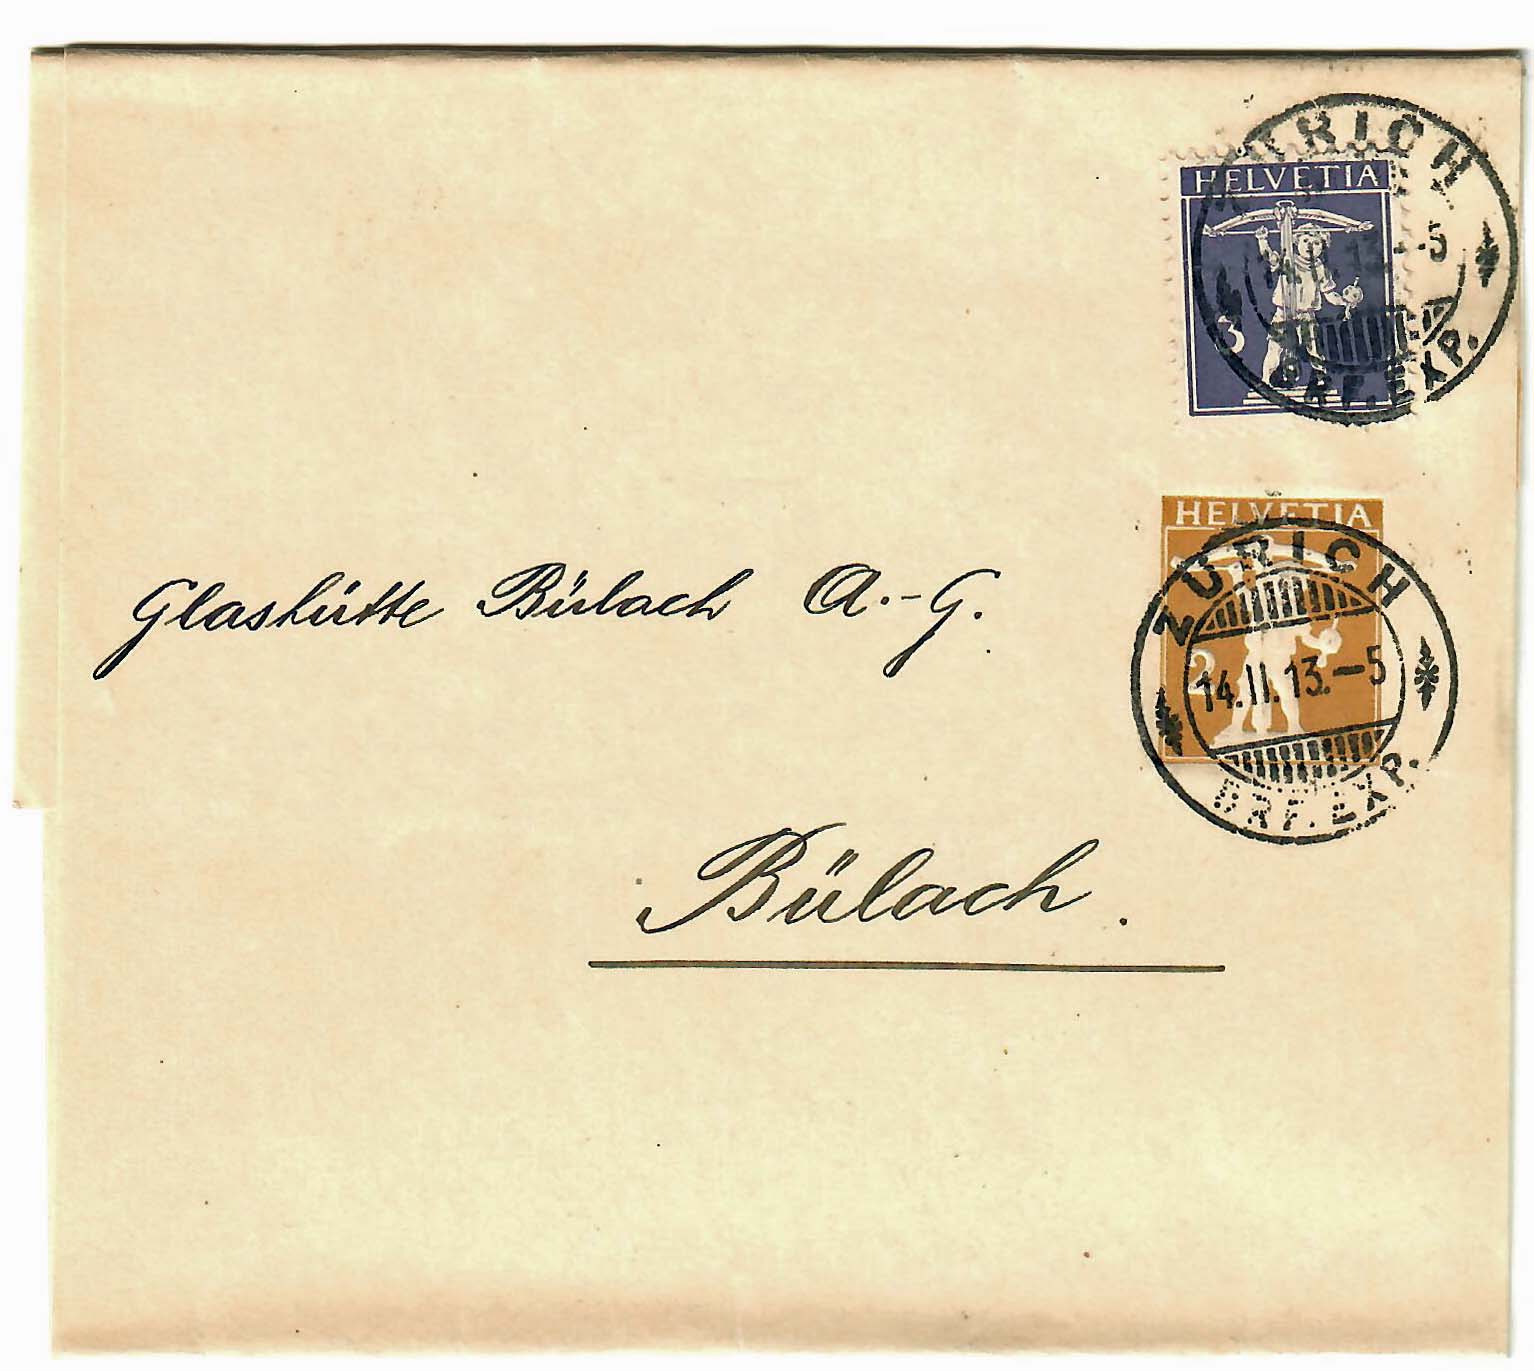 ZÜRICH
HELVETIA
-5
3
BRF. EXP.
Glashütte Bülach A.-G.
HELVETIA
ZÜRICH
2
14.II.13.-5
BRF. EXP.
Bülach.